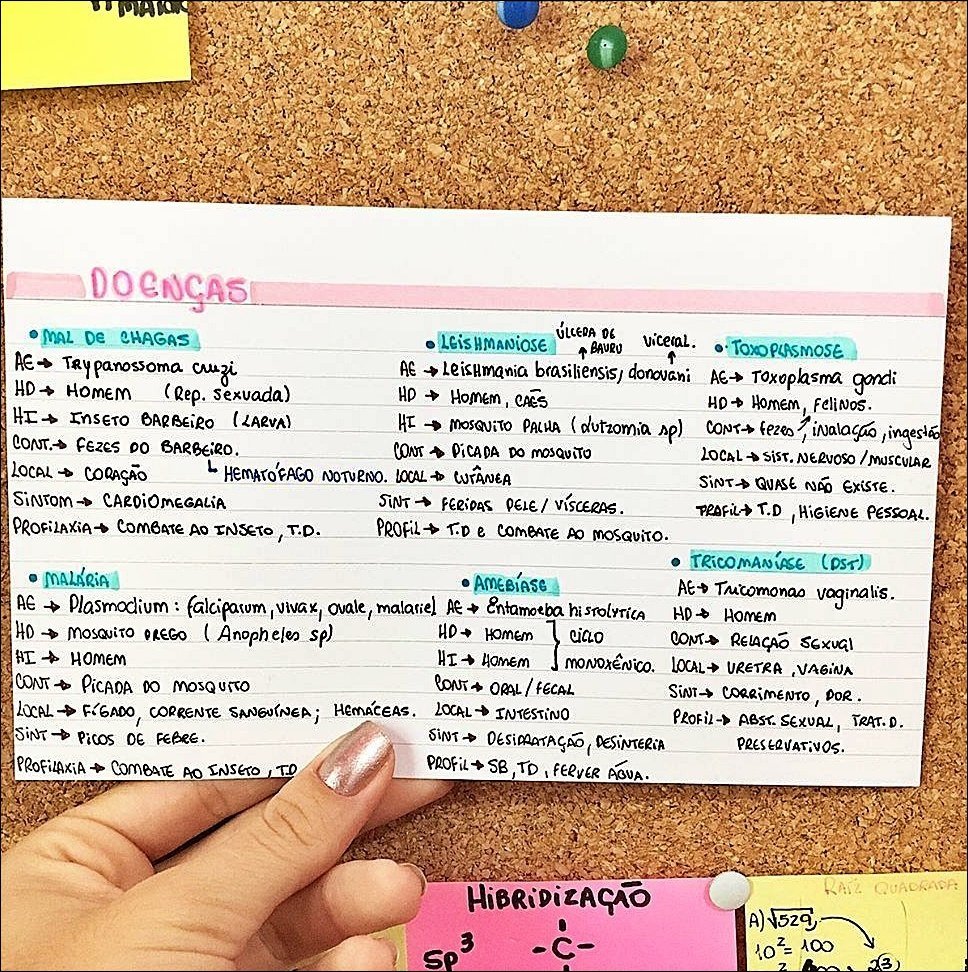 DOENÇAS
• MAL DE CHAGAS
AE → Trypanossoma cruzi
HD → HOMEM (Rep. sexuada)
HI → INSETO BARBEIRO (LARVA)
CONT. → FEZES DO BARBEIRO.
↳ HEMATÓFAGO NOTURNO.
LOCAL → CORAÇÃO
SINTOM → CARDIOMEGALIA
PROFILAXIA → COMBATE AO INSETO, T.D.
• LEISHMANIOSE
ÚLCERA DE
BAURU
VICERAL.
AE → Leishmania brasiliensis/donovani
HD → HOMEM, CAÊS
HI → MOSQUITO PALHA (Lutzomia sp)
CONT → PICADA DO MOSQUITO
LOCAL → CUTÂNEA
SINT → FERIDAS PELE/VÍSCERAS.
PROFIL → T.D E COMBATE AO MOSQUITO.
• TOXOPLASMOSE
AE → Toxoplasma gondi
HD → HOMEM, FELINOS.
CONT → FEZES, INALAÇÃO, INGESTÃO
LOCAL → SIST. NERVOSO/MUSCULAR
SINT → QUASE NÃO EXISTE.
PROFIL → T.D, HIGIENE PESSOAL.
• MALÁRIA
AE → Plasmodium: falciparum, vivax, ovale, malariel
HD → MOSQUITO PREGO (Anopheles sp)
HI → HOMEM
CONT → PICADA DO MOSQUITO
LOCAL → FÍGADO, CORRENTE SANGUÍNEA; HEMÁCEAS.
SINT → PICOS DE FEBRE.
PROFILAXIA → COMBATE AO INSETO, T.D
• AMEBÍASE
AE → Entamoeba histolytica
HD → HOMEM
HI → HOMEM
CICLO
MONOXÊNICO.
CONT → ORAL/FECAL
LOCAL → INTESTINO
SINT → DESIDRATAÇÃO, DESINTERIA
PROFIL → SB, TD, FERVER ÁGUA.
• TRICOMANÍASE (DST)
AE → Tricomonas vaginalis.
HD → HOMEM
CONT → RELAÇÃO SEXUAL
LOCAL → URETRA, VAGINA
SINT → CORRIMENTO, DOR.
PROFIL → ABST. SEXUAL, TRAT. D.
PRESERVATIVOS.
HIBRIDIZAÇÃO
Sp³
-C-
RAIZ QUADRADA
A) √529
10² = 100